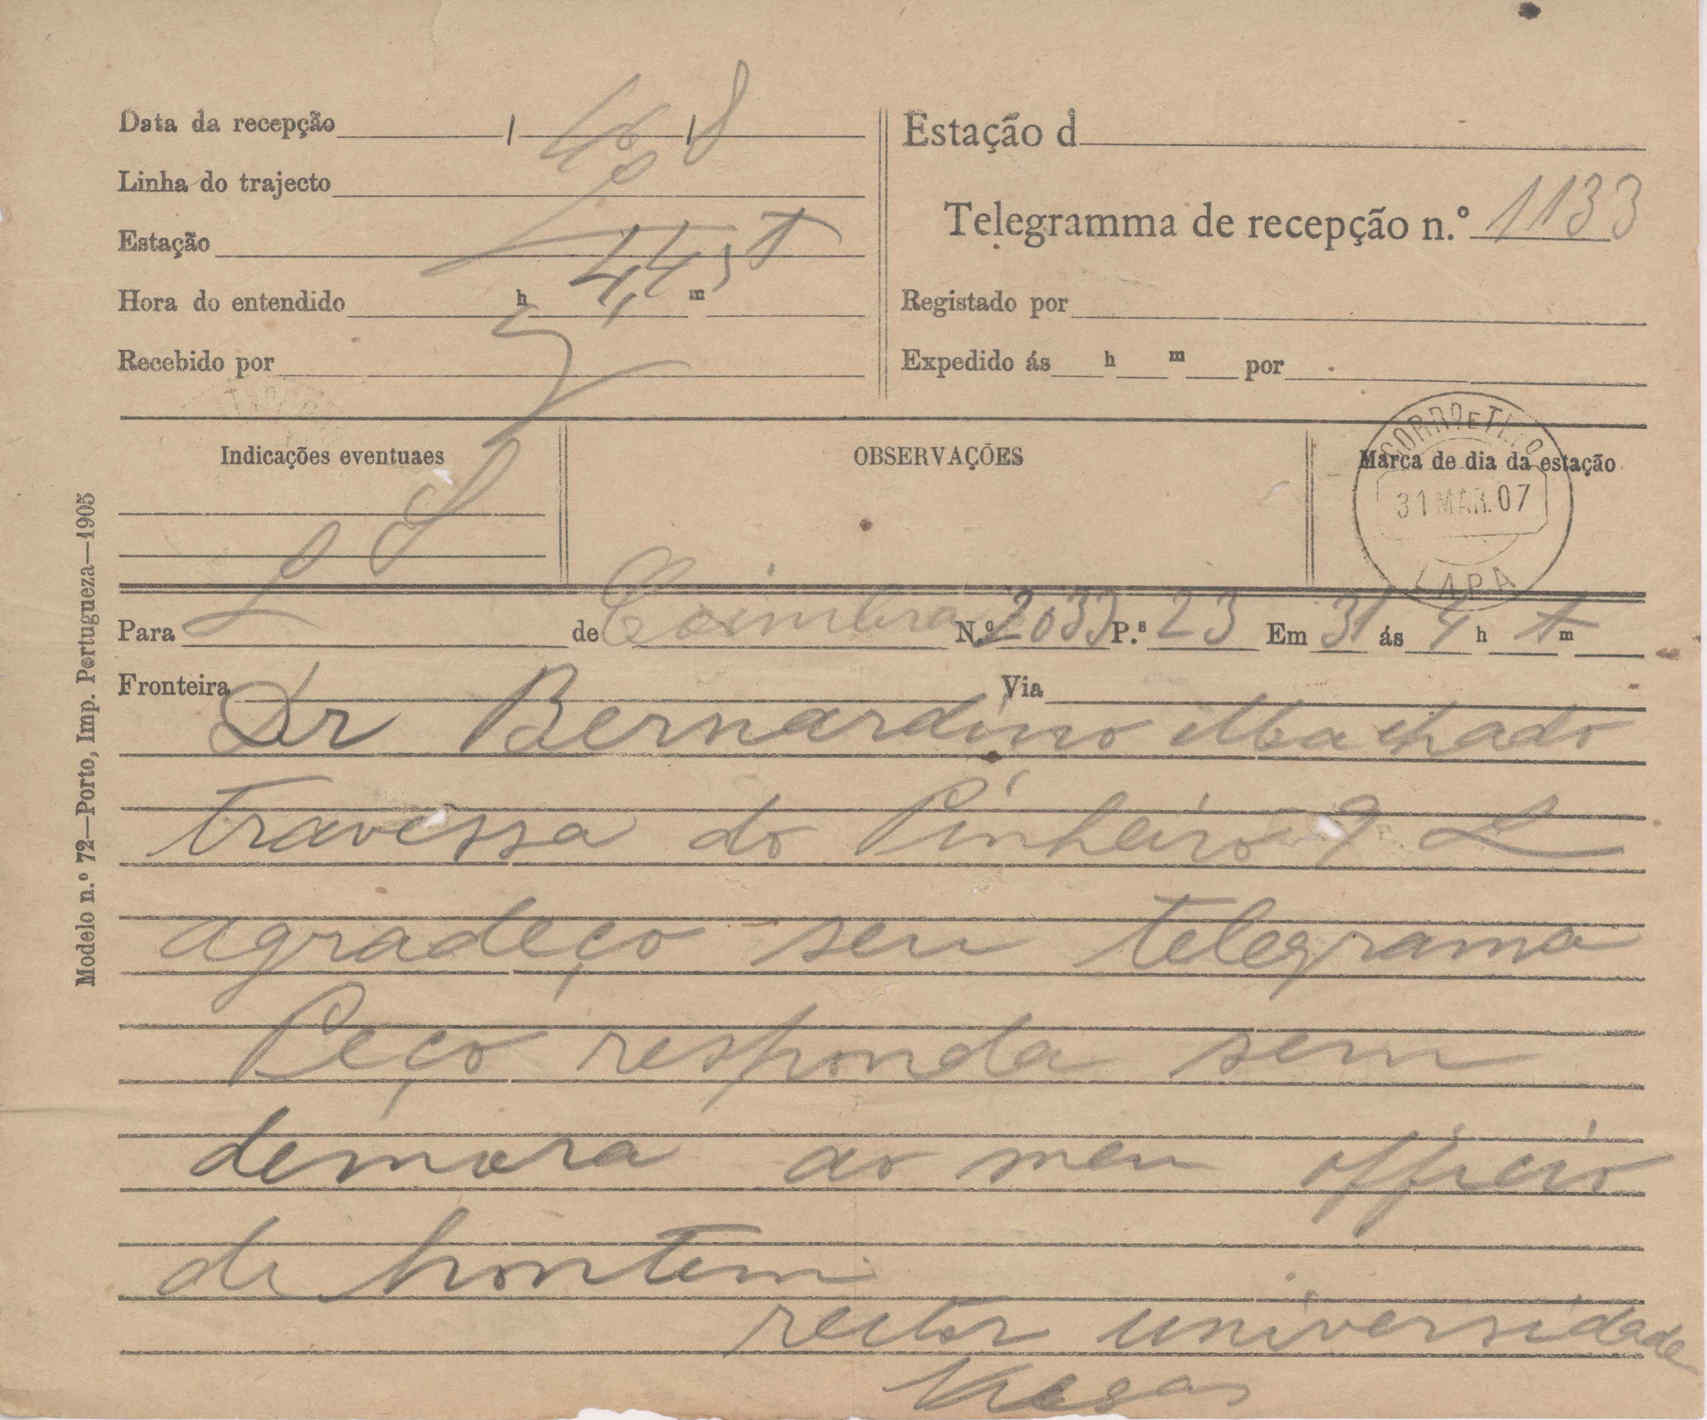 Data da recepção
Linha do trajecto
Estação
Hora do entendido h 4,45 m t
Recebido por
Estação d
Telegramma de recepção n.º 1133
Registado por
Expedido ás h m por
Indicações eventuaes
OBSERVAÇÕES
Marca de dia da estação
31 MAR. 07
LAPA
Para L de Coimbra N.º 2033 P.s 23 Em 31 ás 4 h t m
Fronteira Via
Dr Bernardino Machado
travessa do Pinheiro 9 L
agradeço seu telegrama
Peço responda sem
demora ao meu officio
de hontem
reitor universidade
Viegas
Modelo n.º 72—Porto, Imp. Portugueza—1905